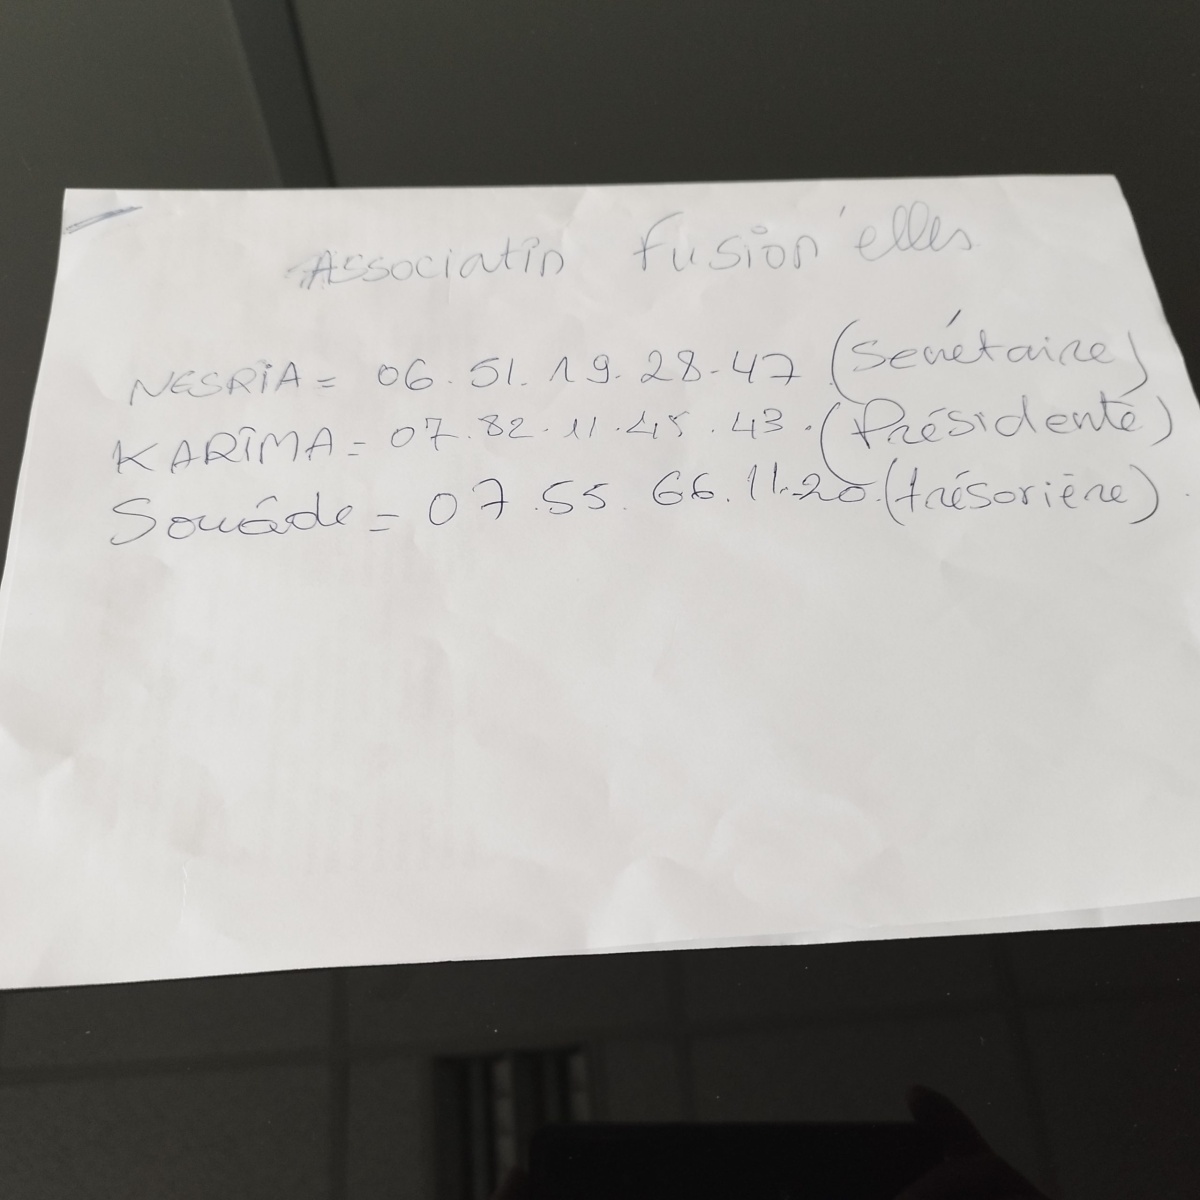 Associatin Fusion'elles
NESRIA = 06.51.19.28-47 (Secrétaire)
KARIMA = 07.82.11.45.43.(Présidente)
Souáde = 07.55.66.11.20.(trésorière)